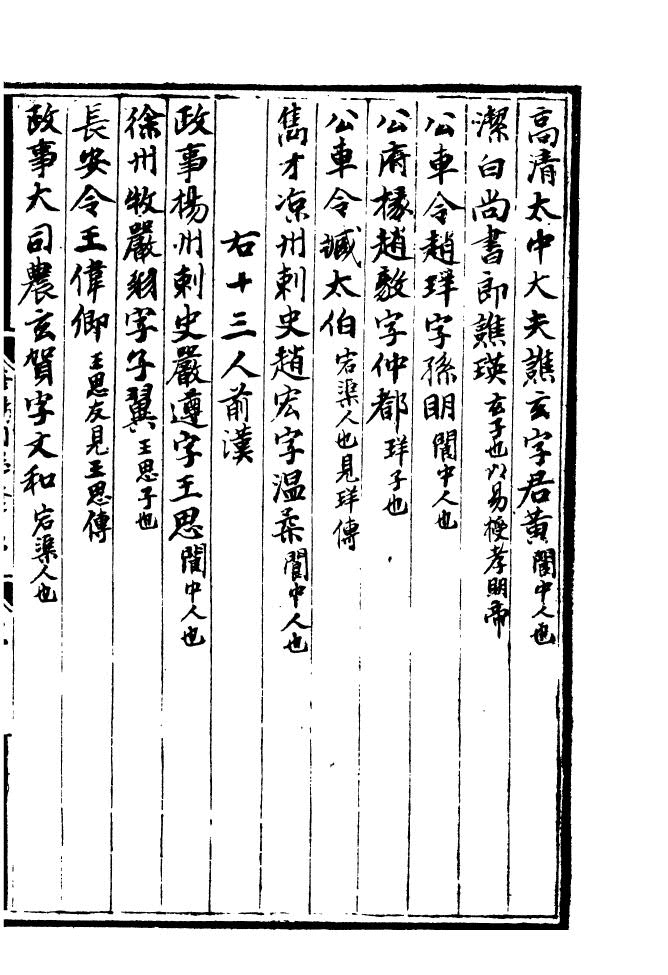 高清太中大夫譙玄字君黄閬中人也
潔白尚書郎譙瑛玄子也以易授孝明帝
公車令趙珜字孫明閬中人也
公府椽趙毅字仲都珜子也
公車令臧太伯宕渠人也見珜傳
雋才凉州刺史趙宏字温柔閬中人也
右十三人前漢
政事楊州刺史嚴遵字王思閬中人也
徐州牧嚴羽字子翼王思子也
長安令王偉卿王思友見王思傳
政事大司農玄賀字文和宕渠人也